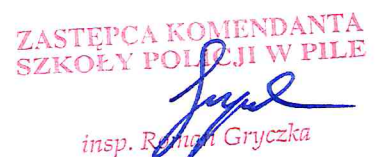 ZASTĘPCA KOMENDANTA
SZKOŁY POLICJI W PILE
insp. Roman Gryczka